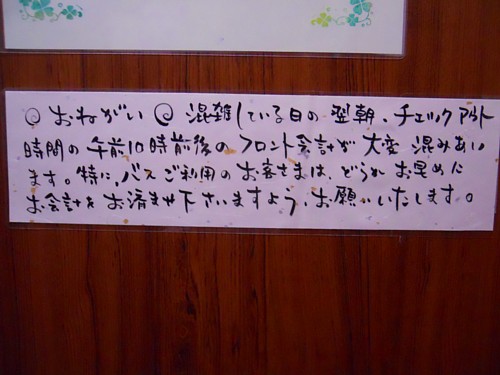 おねがい 混雑している日の翌朝、チェックアウト
時間の午前10時前後のフロント会計が大変混みあい
ます。特に、バスご利用のお客さまは、どうぞお早めに
お会計をお済ませ下さいますよう、お願いいたします。